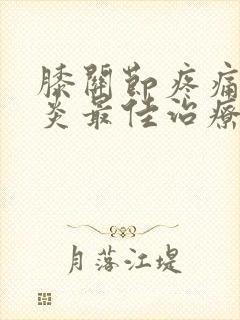 膝關節疼痛
炎最佳治療
月落江堤